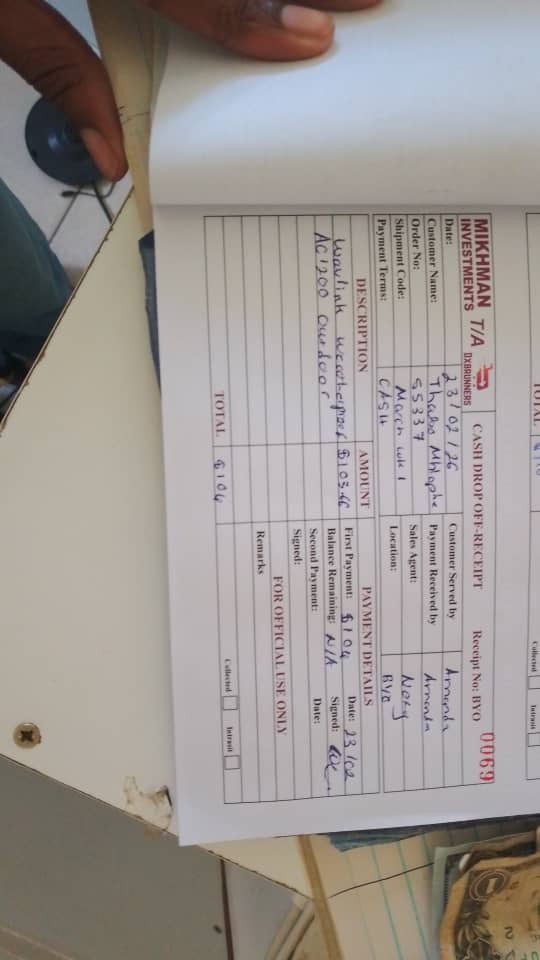 TOTAL
Collected Intransit
MIKHMAN T/A DXBRUNNERS
INVESTMENTS
CASH DROP OFF-RECEIPT Receipt No: BYO 0069
Date: 23/02/26 Customer Served by Amanda
Customer Name: Thabo Mhlophe Payment Received by Amanda
Order No: 55337 Sales Agent: Nozy
Shipment Code: March wk 1 Location: BYO
Payment Terms: CASH
DESCRIPTION AMOUNT PAYMENT DETAILS
Wavlink weatherproof $103.60 First Payment: $104 Date: 23/02
AC1200 Outdoor Balance Remaining: N/A Signed:
Second Payment: Date:
Signed:
FOR OFFICIAL USE ONLY
Remarks
TOTAL $104 Collected Intransit